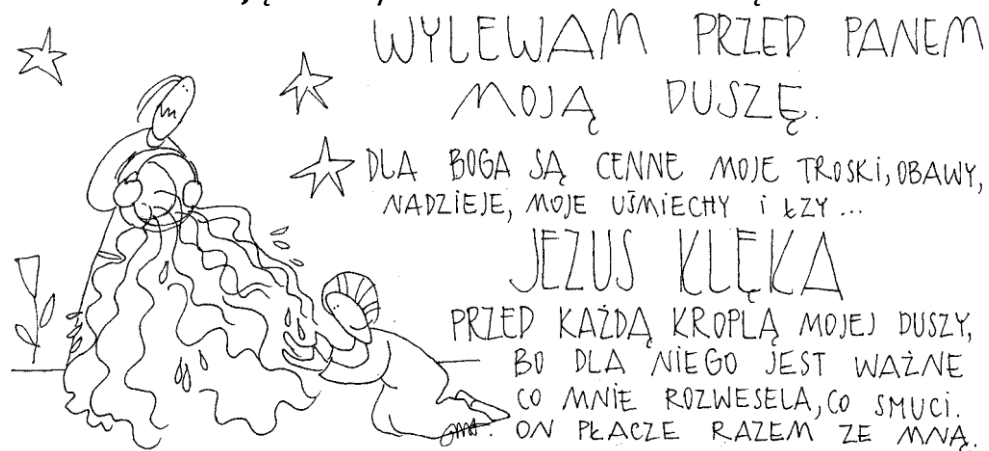 WYLEWAM PRZED PANEM
MOJĄ DUSZĘ.
DLA BOGA SĄ CENNE MOJE TROSKI, OBAWY,
NADZIEJE, MOJE UŚMIECHY i ŁZY ...
JEZUS KLĘKA
PRZED KAŻDĄ KROPLĄ MOJEJ DUSZY,
BO DLA NIEGO JEST WAŻNE
CO MNIE ROZWESELA, CO SMUCI.
ON PŁACZE RAZEM ZE MNĄ.